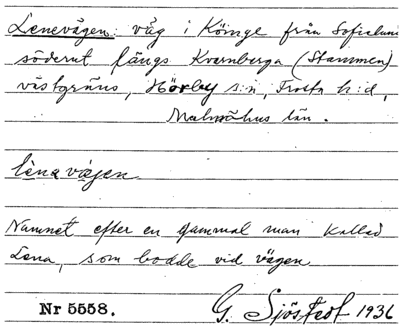 Lenevägen: väg i Köinge från Sofielund
söderut längs Kvarnberga (Stammen)
västgräns, Hörby s:n, Frosta h:d,
Malmöhus län.
lènavä́jen
Namnet efter en gammal man kallad
Lena, som bodde vid vägen
Nr 5558. G. Sjöstedt 1936